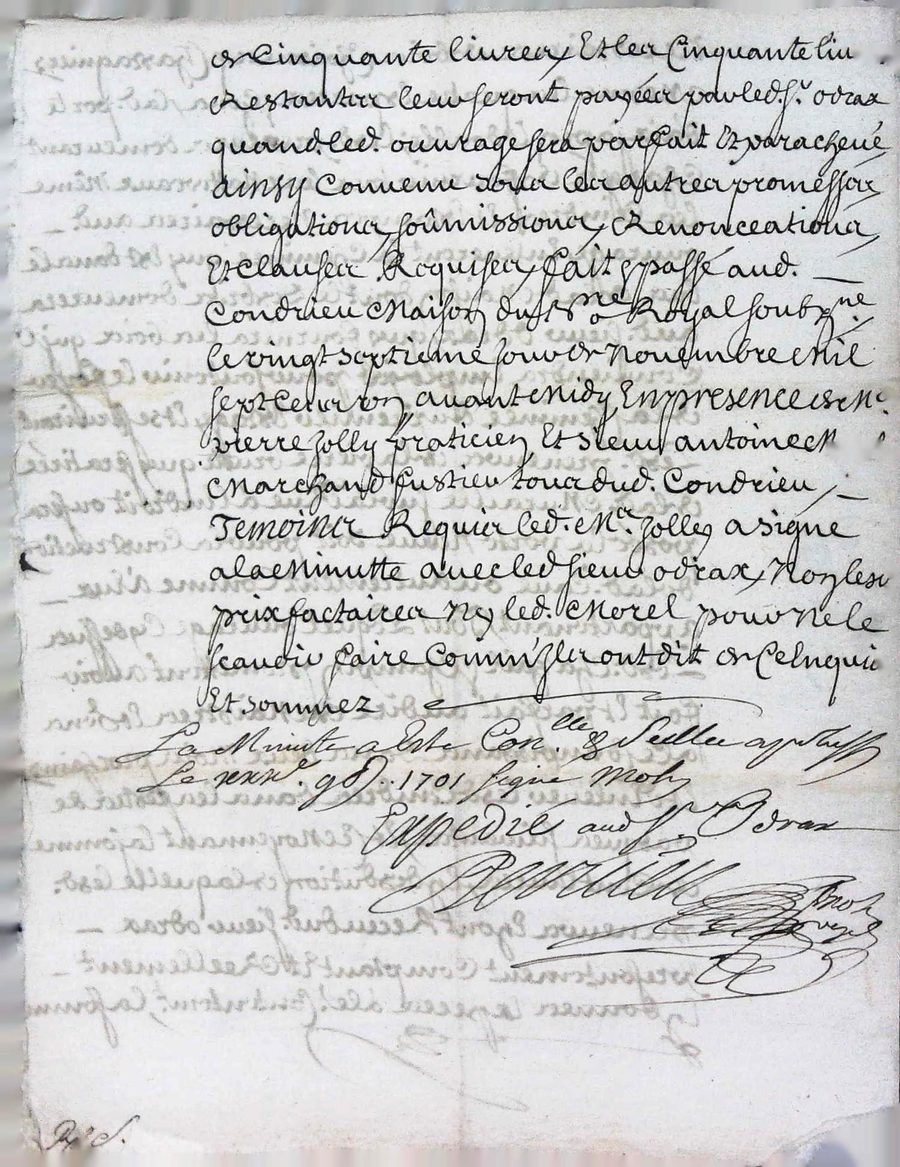 de Cinquante livres, Et les Cinquante liv
Restantes leur seront payées par led. Sr. odrax
quand. led. ouvrage sera parfait Et parachevé
ainsy Convenu sous les autres promesses,
obligations, soûmissions, Renonceations,
Et clauses Requises, fait & passé aud.
Condrieu Maison du nre Royal soubzne.
le vingt septieme jour de Novembre Mil
sept Cens un avant Midy En presence de Me.
pierre Jolly praticien Et sieur antoine M
Marchand tous dud. Condrieu,
Temoins Requis led. Me. Jolly a signé
a la Minutte avec led sieur odrax, Non les
prixfactaires Ny led. Morel pour Ne le
scavoir faire Comm'Ils ont dit de Ce Enquis
Et sommez
La Minute a Esté Con.lle & Scellee
Le 9b. 1701 signé
Expedié aud Sr. Odrax
not
royal